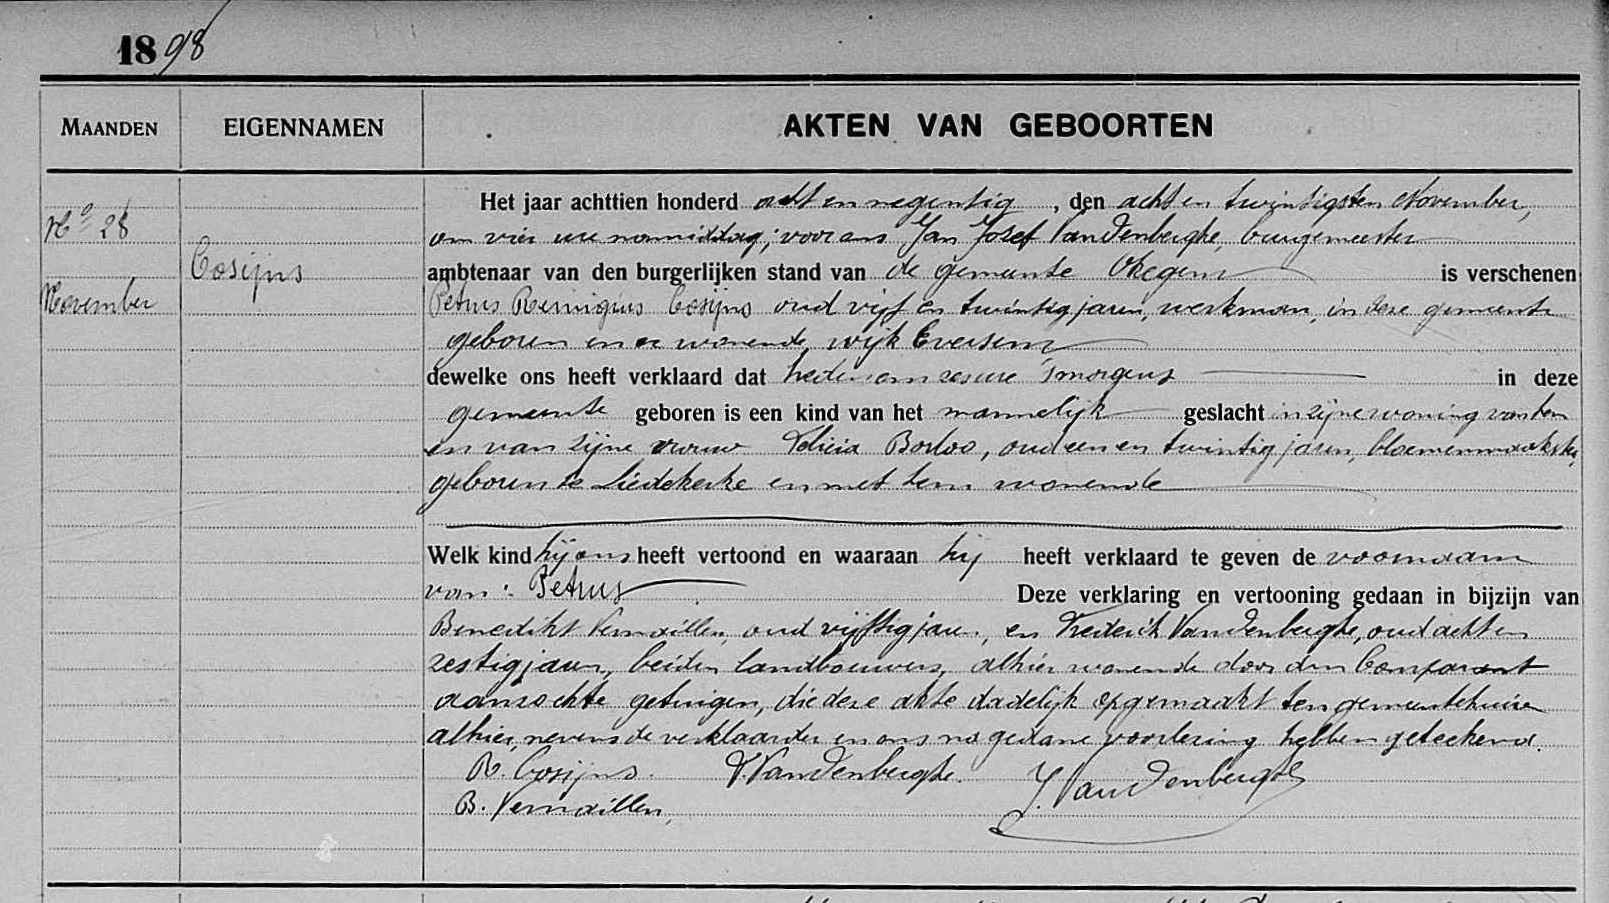 1898
MAANDEN
EIGENNAMEN
AKTEN VAN GEBOORTEN
No 28
November
Cosijns
Het jaar achttien honderd acht en negentig, den acht en twintigsten November,
om vier ure namiddag; voor ons Jan Josef VanDenberghe, burgemeester
ambtenaar van den burgerlijken stand van de gemeente Okegem is verschenen
Petrus Remigius Cosijns oud vijf en twintig jaren, werkman, in deze gemeente
geboren en er wonende, wijk Eversem
dewelke ons heeft verklaard dat heden om zes ure 's morgens in deze
gemeente geboren is een kind van het mannelijk geslacht in zijne woning van hem
en van zijne vrouw Felicia Borloo, oud een en twintig jaren, bloemenmaakster,
geboren te Liedekerke en met hem wonende
Welk kind hij ons heeft vertoond en waaraan hij heeft verklaard te geven de voornaam
van: Petrus Deze verklaring en vertooning gedaan in bijzijn van
Benedikt Vernaillen, oud vijftig jaren, en Frederik VanDenberghe, oud acht en
zestig jaren, beiden landbouwers, alhier wonende door den Comparant
aanzochte getuigen, die deze akte dadelijk opgemaakt ten gemeentehuize
alhier, nevens de verklaarder en ons na gedane voorlezing hebben geteekend.
R. Cosijns. F. VanDenberghe. J. VanDenberghe
B. Vernaillen,